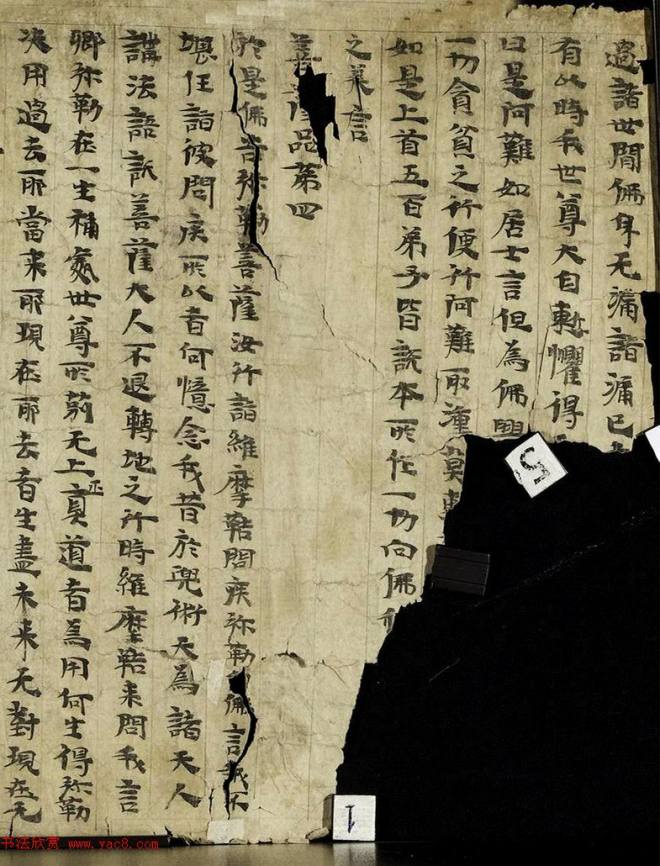 過諸世間佛身无漏諸漏已
有此時我世尊大自慙懼得
曰是阿難如居士言但為佛興
一切貪貧之行便行阿難取湩莫
如是上首五百弟子皆說本所作一切向佛
之慕言
菩薩品第四
於是佛告弥勒菩薩汝行詣維摩鞊問疾弥勒佛言我不
堪任詣彼問疾所以者何憶念我昔於兜術天為諸天人
講法語說菩薩大人不退轉地之行時維摩鞊来問我言
卿弥勒在一生補處世尊所莂无上正真道者為用何生得弥勒
决用過去耶當来耶現在耶去者生盡未来无對現在无
2
1
书法欣赏 www.yac8.com